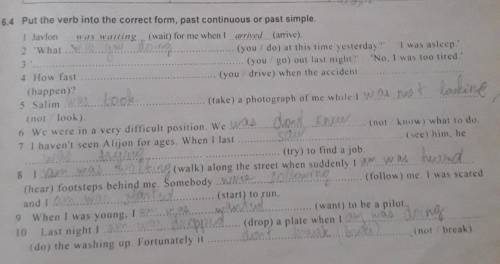 6.4 Put the verb into the correct form, past continuous or past simple.
1 Javlon was waiting (wait) for me when I arrived (arrive).
2 'What was you doing (you / do) at this time yesterday?' 'I was asleep.'
3 ' (you / go) out last night?' 'No, I was too tired.'
4 How fast (you / drive) when the accident
(happen)?
5 Salim was took (take) a photograph of me while I was not looking
(not / look).
6 We were in a very difficult position. We was dont knew (not / know) what to do.
7 I haven't seen Alijon for ages. When I last saw (see) him, he
was (try) to find a job.
8 I am was walking (walk) along the street when suddenly I am was heard
(hear) footsteps behind me. Somebody were following (follow) me. I was scared
and I am was started (start) to run.
9 When I was young, I am was wanted (want) to be a pilot.
10 Last night I am was dropped (drop) a plate when I am was doing
(do) the washing up. Fortunately it dont break (not / break).